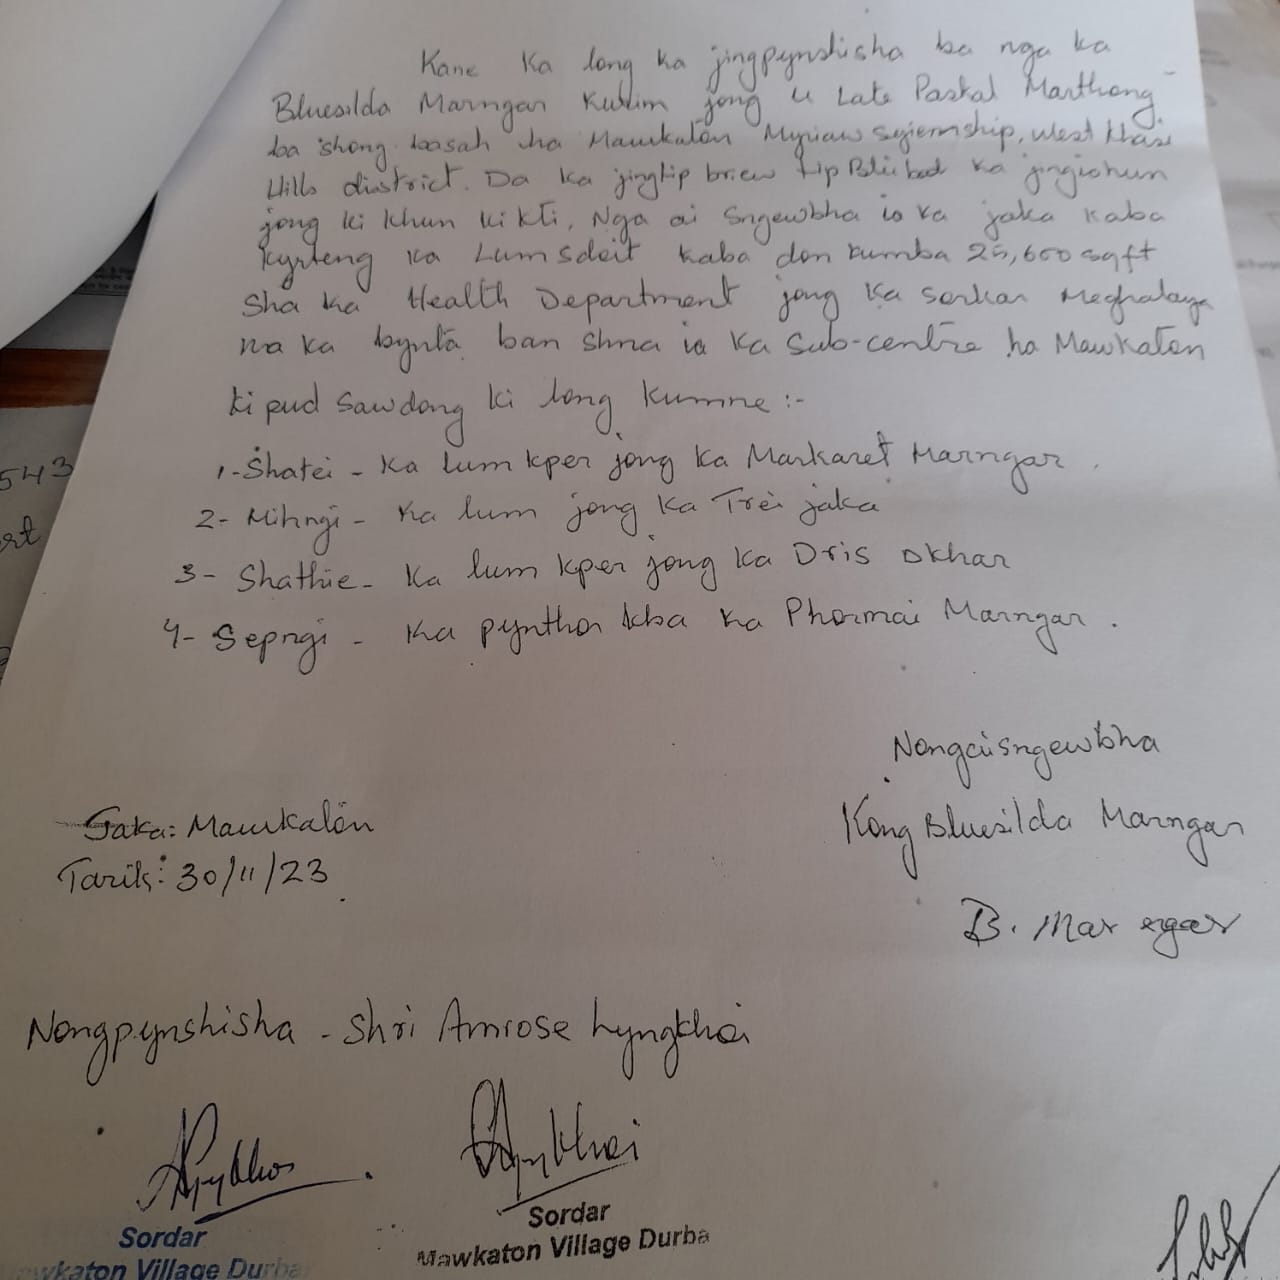 Kane Ka long ka jingpynshisha ba nga ka
Bluesilda Marngar Kurim jong u Late Paskal Marthong
ba shong basah ha Mawkaton Myriaw Syiemship, West Khasi
Hills district. Da ka jingtip briew tip Blei bad ka jingiohun
jong ki khun ki kti, Nga ai Sngewbha ia ka jaka kaba
kyrteng ka Lumsdeit kaba don kumba 25,600 sqft
Sha ka Health Department jong ka sorkar Meghalaya
na ka bynta ban shna ia ka Sub-centre ha Mawkaton
ki pud sawdong ki long kumne :-
1- Shatei - Ka lum kper jong ka Markaret Marngar .
2- Mihngi - Ka lum jong ka Trei jaka
3- Shathie - Ka lum kper jong ka Dris Dkhar
4- Sepngi - Ka pynthor kba ka Phormai Marngar .
Nongaisngewbha
Kong Bluesilda Marngar
B. Marngar
Jaka: Mawkaton
Tarik: 30/11/23
Nongpynshisha - Shri Amrose Lyngkhoi
Sordar
Mawkaton Village Durba
Sordar
wkaton Village Durba